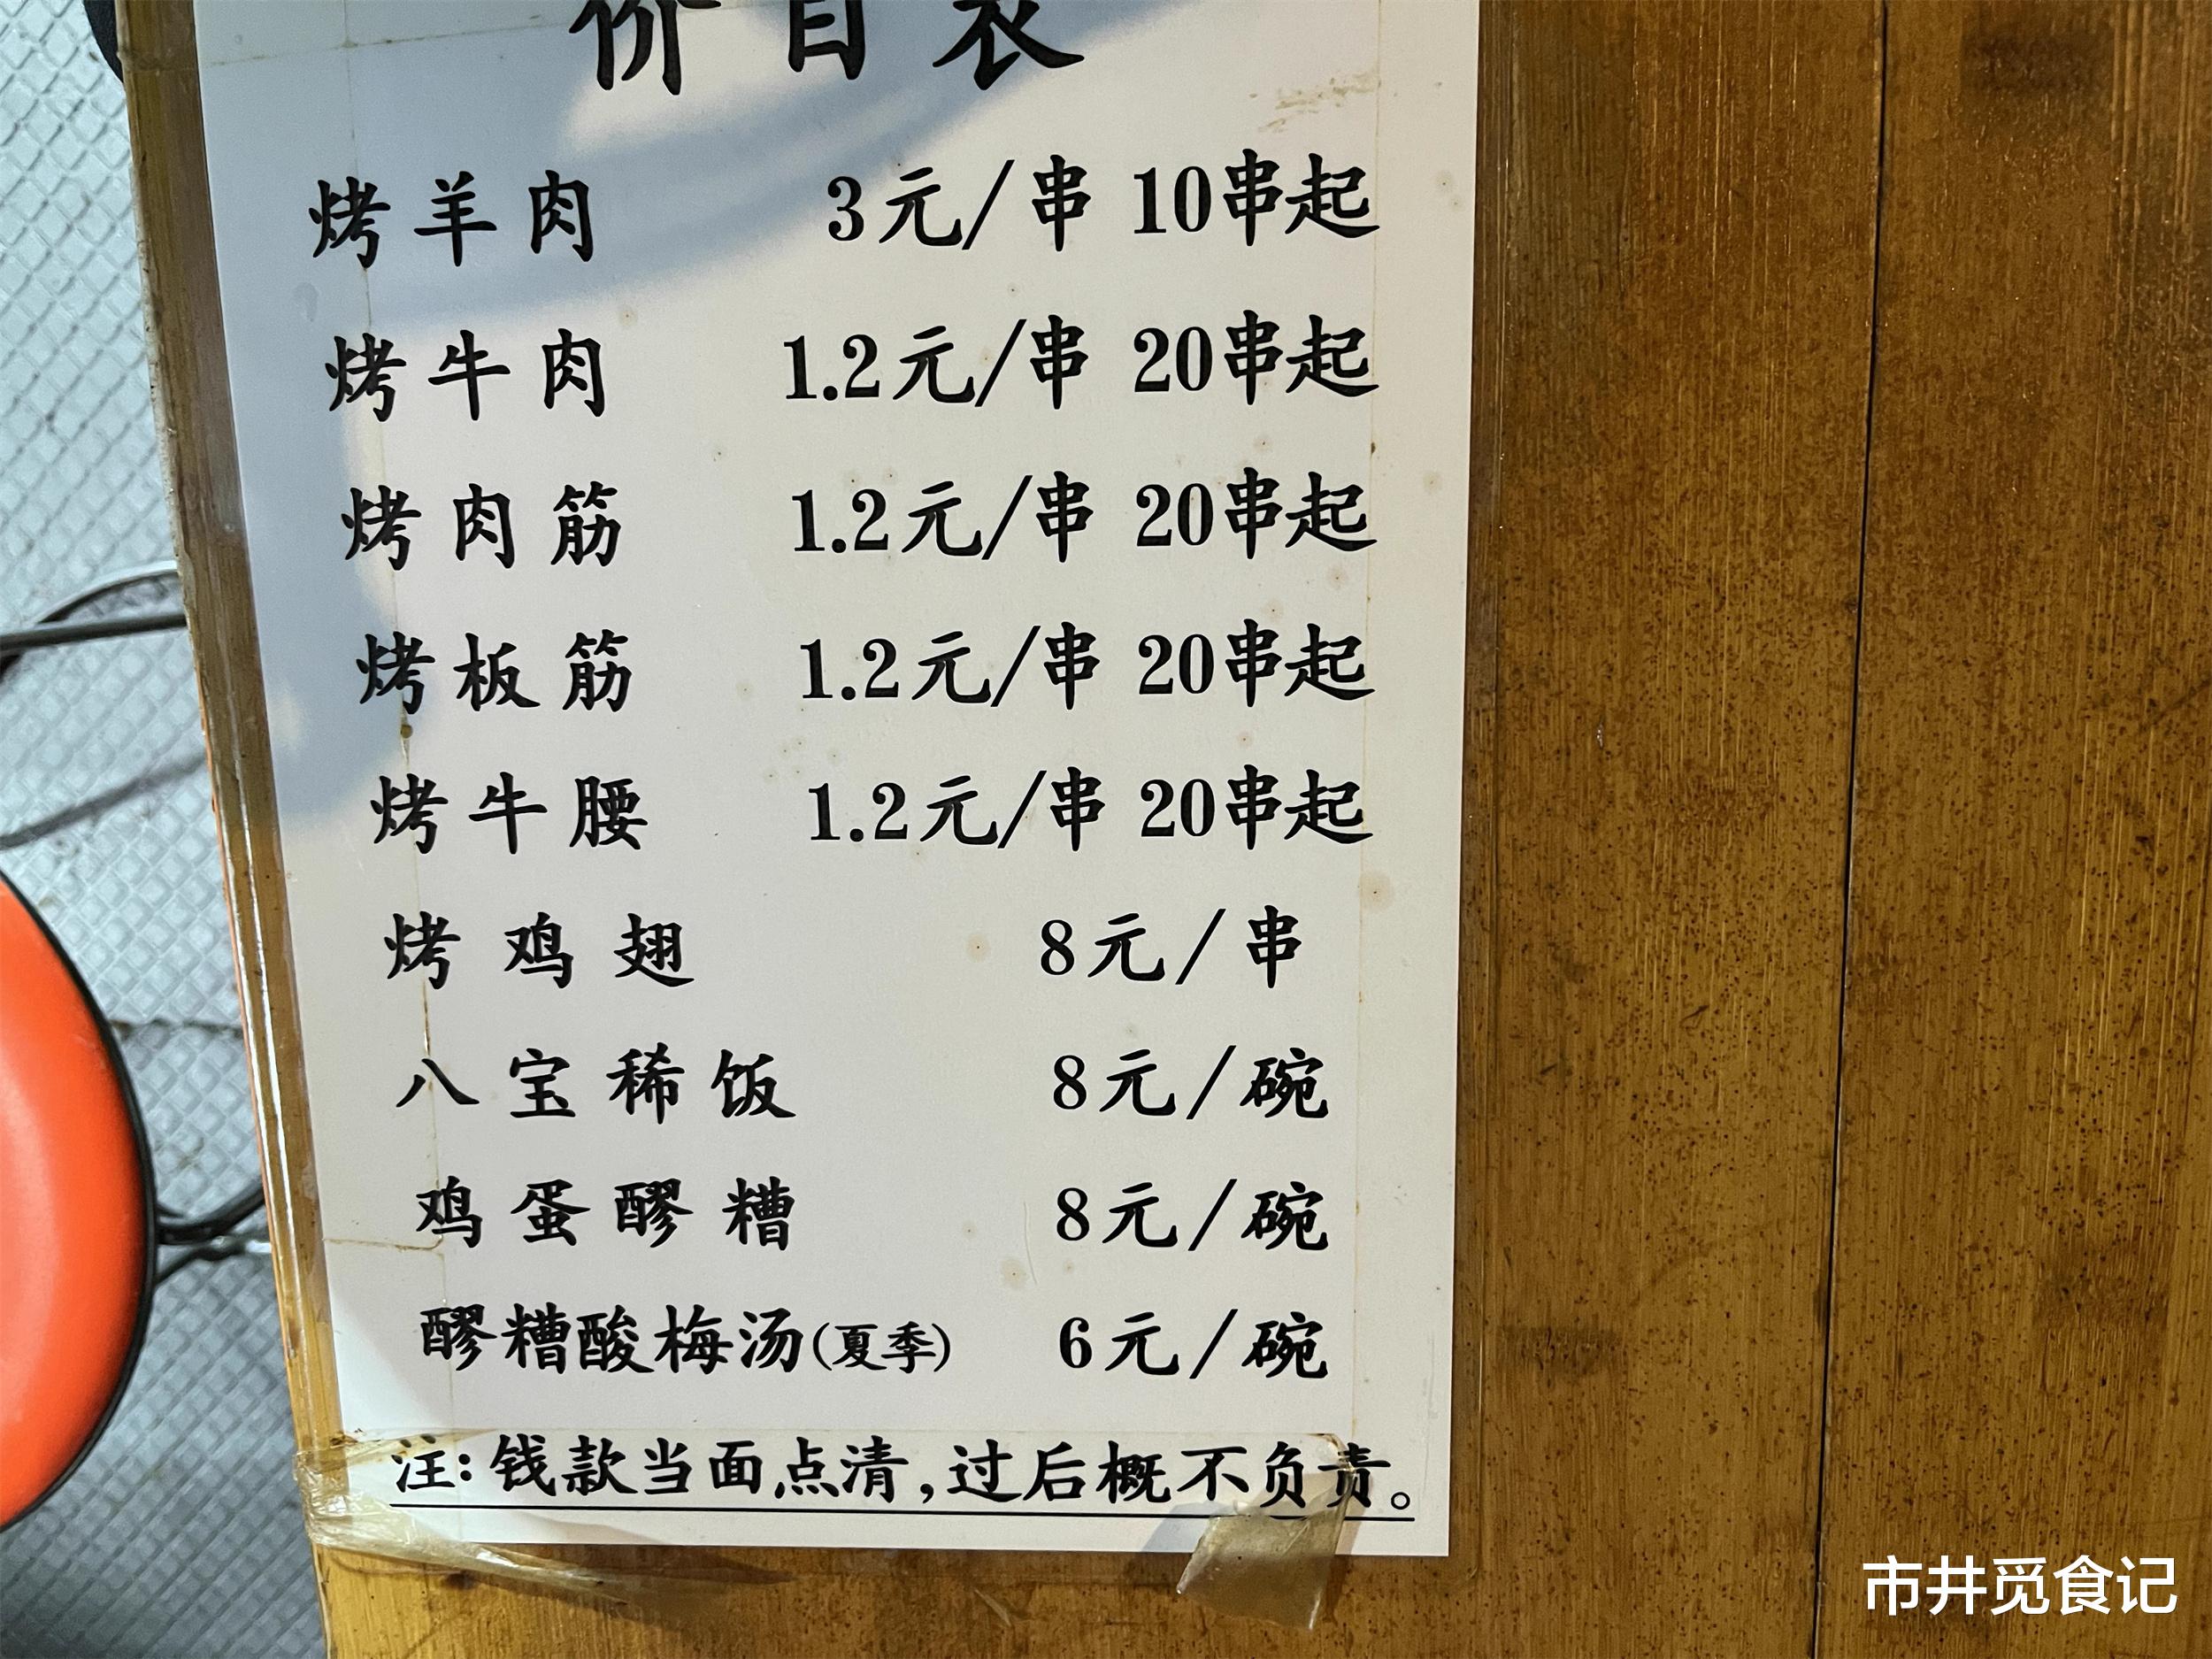 价目表
烤羊肉 3元/串 10串起
烤牛肉 1.2元/串 20串起
烤肉筋 1.2元/串 20串起
烤板筋 1.2元/串 20串起
烤牛腰 1.2元/串 20串起
烤鸡翅 8元/串
八宝稀饭 8元/碗
鸡蛋醪糟 8元/碗
醪糟酸梅汤(夏季) 6元/碗
注:钱款当面点清,过后概不负责。
市井觅食记